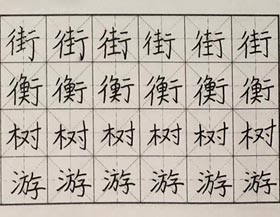 街街街街街街
衡衡衡衡衡衡
树树树树树树
游游游游游游